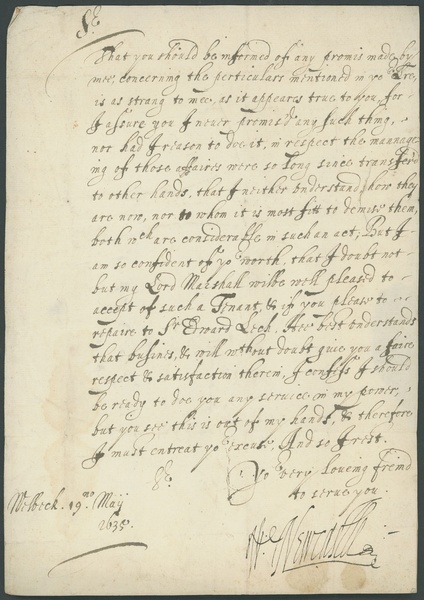 Sr.
That you should be informed of any promis made by
mee, concerning the perticulars mentioned in yor Lre,
is as strang to mee, as it appeares true to you, for
I assure you I never promis'd any such thing,
nor had I reason to doe it, in respect the mannage
ing of those affaires were so long since transferd
to other hands, that I neither understand how they
are now, nor to whom it is most fitt to demise them,
both wch are considerable in such an act; But I
am so confident of yor worth, that I doubt not
but my Lord Marshall wilbe well pleased to
accept of such a Tenant, & if you please to
repaire to Sr Edward Lech. Hee best understands
that busines, & will without doubt give you a faire
respect & satisfaction therein, I confess I should
be ready to doe you any service in my power,
but you see this is out of my hands, & therefore
I must entreat yor excuse, And so I rest.
Sr.
Yor very loveing freind
to serve you.
Welbeck. 19mo Maij
1635.
W: Newcastle